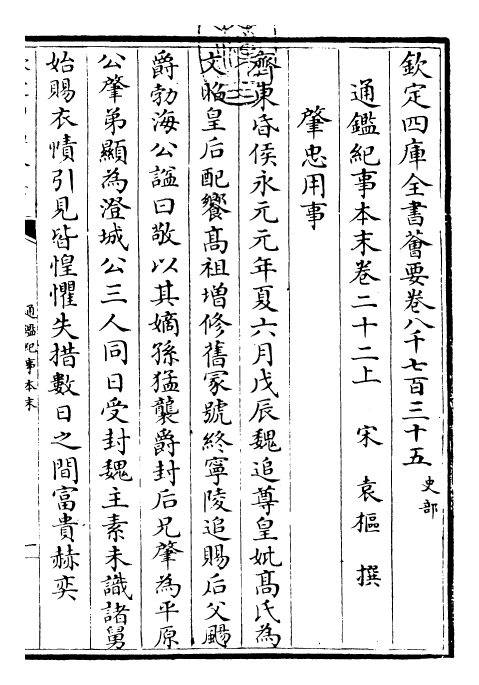 欽定四庫全書薈要卷八千七百三十五 史部
通鑑紀事本末卷二十二上 宋 袁樞 撰
肇忠用事
齊東昏侯永元元年夏六月戊辰魏追尊皇妣髙氏為
文昭皇后配饗髙祖増修舊冢號終寧陵追賜后父颺
爵勃海公諡曰敬以其嫡孫猛襲爵封后兄肇為平原
公肇弟顯為澄城公三人同日受封魏主素未識諸舅
始賜衣幘引見皆惶懼失措數日之間富貴赫奕
通鑑紀事本末
一